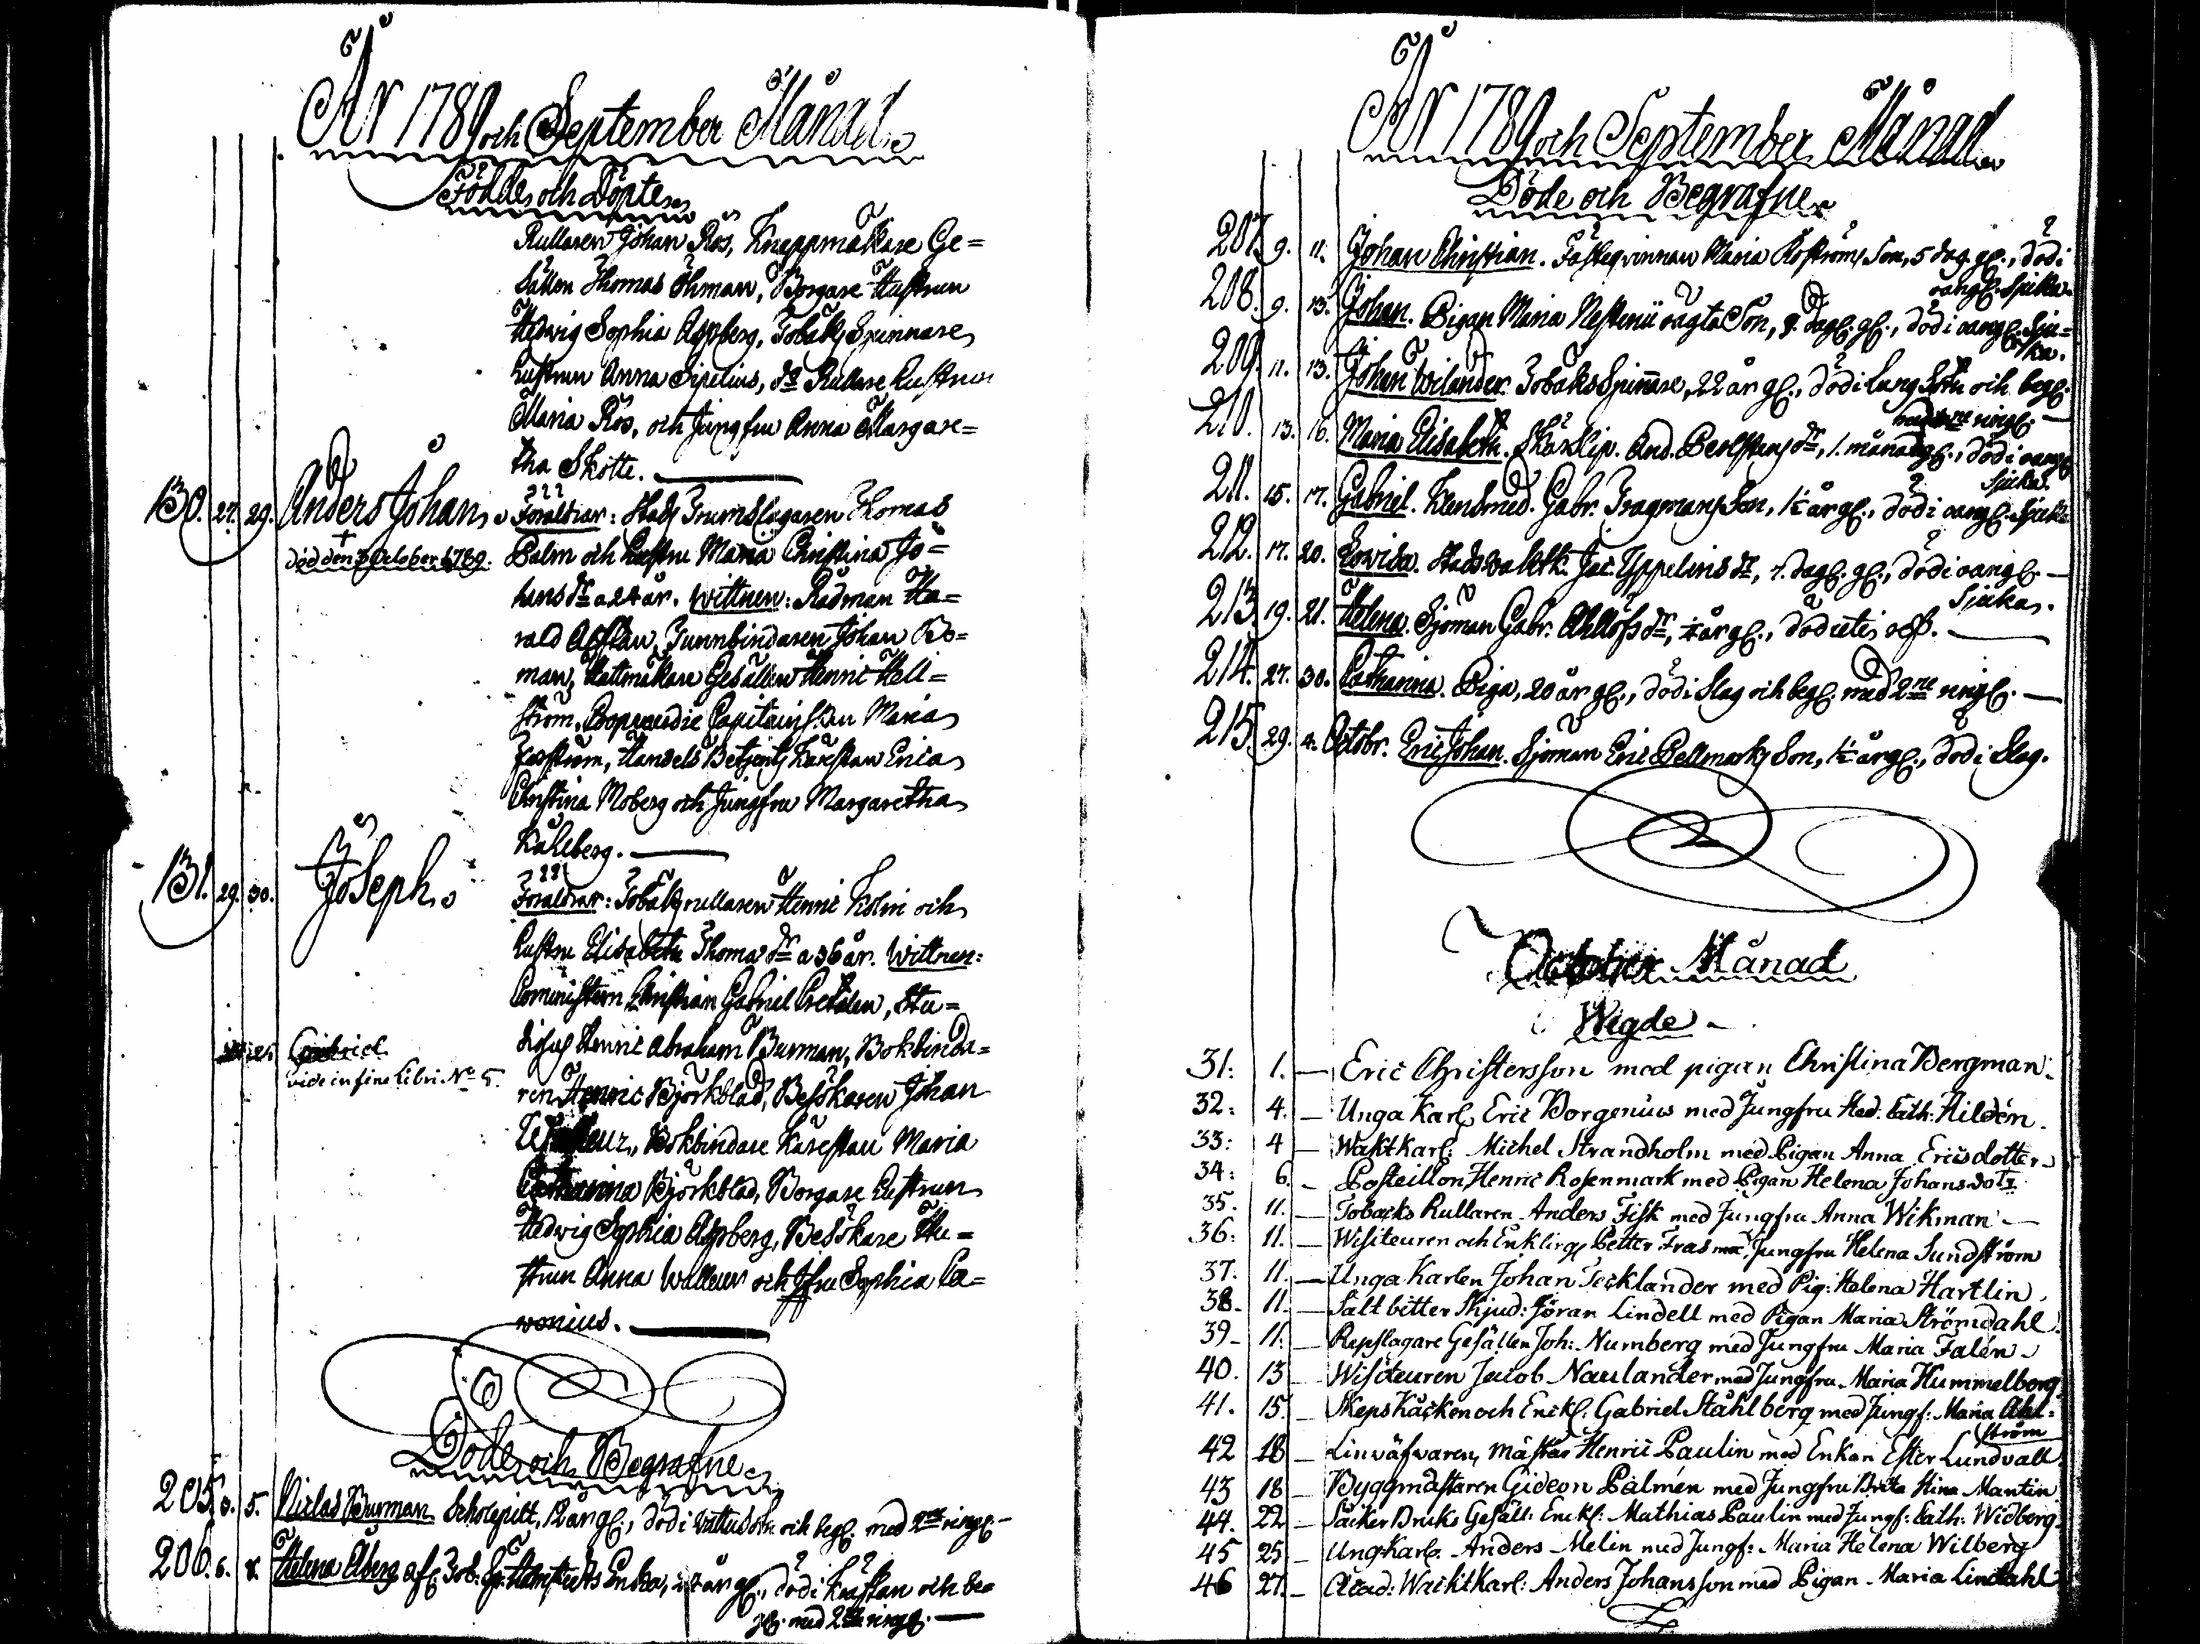 År 1789 och September Månad
Födde och Döpte
Rullaren Johan Rös, Knappmakare Ge=
sällen Thomas Öhman, Borgare Hustrun
Hedwig Sophia Aspberg, Tobaks Spinnare
hustrun Anna Sipelius, do Rullare hustrun
Maria Rös, och Jungfru Anna Margare=
tha Skotte.
130. 27. 29. Anders Johan
Föräldrar: Stads Trumslagaren Thomas
död den 3 October 1789.
Palm och hustru Maria Christina Jo=
hansdr a 24 år. Wittnen: Rådman Ha=
rald Tunnbindaren Johan Bo=
man, Hattmakare Gesällen Henric Hell=
ström, Capitains Maria
Handels Betjents Kärestan Erica
Christina Moberg och Jungfru Margaretha
Kahlberg.
131. 29. 30. Joseph
Föräldrar: Tobaks rullaren Henric Holm och
hustru Elisabeth Thomasdr a 36 år. Wittnen:
Comministern Christian Gabriel Stu=
diosus Henric Abraham Burman, Bokbinda=
Gabriel
vide in fine Libri No 5.
ren Henric Björkblad, Besökaren Johan
Bokbindare Kärestan Maria
Catharina Björkblad, Borgare Hustrun
Hedwig Sophia Aspberg, Besökare Hu=
strun Anna och Jfru Sophia Ca=
wonius.
Döde och Begrafne
205. 3. 5. Niclas Burman Scholepilt, 12 år gl., död i och begr. med 2ne ringr.
206. 6. 8. Helena Åberg afl. Tob. Sp. Enka, år gl., död i Kräftan och be=
gr. med 2ne ringr.
År 1789 och September Månad
Döde och Begrafne
207. 9. 11. Johan Christian. Fästeqvinnan Maria Roströms Son, 5 dag. gl., död i
oangl. Sjuka.
208. 9. 13. Johan. Pigan Maria oägta Son, 8. dagl. gl., död i oangl. Sju=
ka.
209. 11. 13. Johan Wilander. Tobaks Spinnare, 22 år gl., död i Lung Soten och begr.
med 2ne ringr.
210. 13. 16. Maria Elisabeth. Skärslip. And. dr, 1. månad gl., död i oangl.
Sjuka.
211. 15. 17. Gabriel. Klensmed. Gabr. Tragmans Son, ½ år gl., död i oangl. Sjuk.
212. 17. 20. Lowisa. Stads waktk. Jac. dr, 7. dagl. gl., död i oangl.
Sjuka.
213. 19. 21. Helena. Sjöman Gabr. Ahllöfs dr, år gl.,
214. 27. 30. Catharina. Piga, 20 år gl., död i Slag och begr. med 2ne ringr.
215. 29. 4. Octobr. Eric Johan. Sjöman Eric Pellmarks Son, ½ år gl., död i Slag.
October Månad
Wigde
31: 1. Eric Christersson med pigan Christina Bergman.
32: 4. Unga Karl. Eric Borgenius med Jungfru Hed. Cath. Hildén.
33: 4 Waktkarl: Michel Strandholm med Pigan Anna Ericsdotter
34: 6. Posteillon Henric Rosenmark med Pigan Helena Johansdotr
35. 11. Tobacks Rullaren Anders Fisk med Jungfru Anna Wikman
36: 11. Wisiteuren och Enkling Petter Fras med Jungfru Helena Sundström
37. 11. Unga Karlen Johan Tecklander med Pig: Helena Hartlin
38. 11. Saltpitter Skjud: Jöran Lindell med Pigan Maria Strömdahl
39. 11. Repslagare Gesällen Joh: Numberg med Jungfru Maria Falén
40. 13 Wisiteuren Jacob Naulander med Jungfru Maria Hummelberg
41. 15. och Enckl. Gabriel Ståhlberg med Jungf: Maria Ahl=
ström
42 18 Linwäfwaren, Mästar Henric Paulin med Enkan Ester Lundvall
43 18 Byggmästaren Gideon Palmén med Jungfru Brita Stina Mantin
44. 22 Såcker Bruks Gesäll: Enckl: Mathias Paulin med Jungf: Cath: Widberg
45 25 Ungkarl. Anders Melin med Jungf: Maria Helena Wilberg
46 27. Acad: Wacktkarl: Anders Johansson med Pigan Maria Lindahl